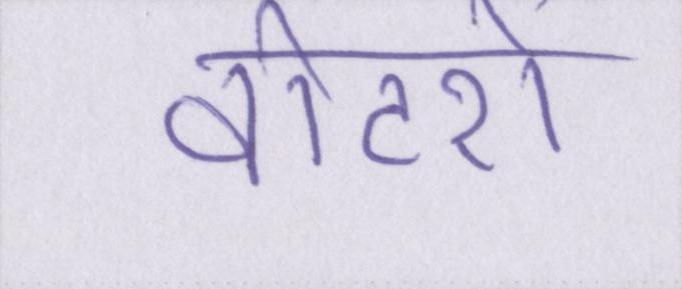 वोटरों